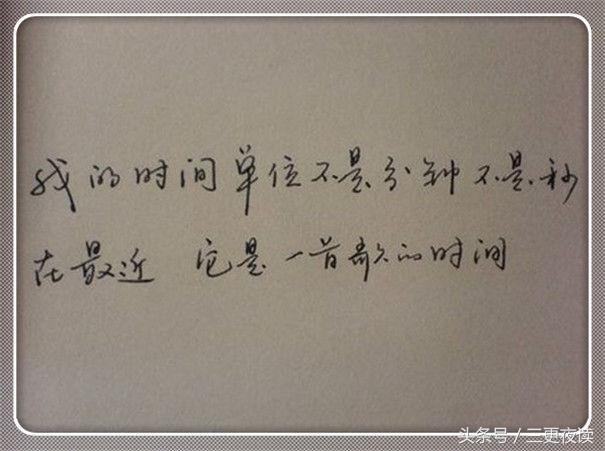 我的时间单位不是分钟不是秒
在最近 它是一首歌的时间
头条号 / 三更夜读